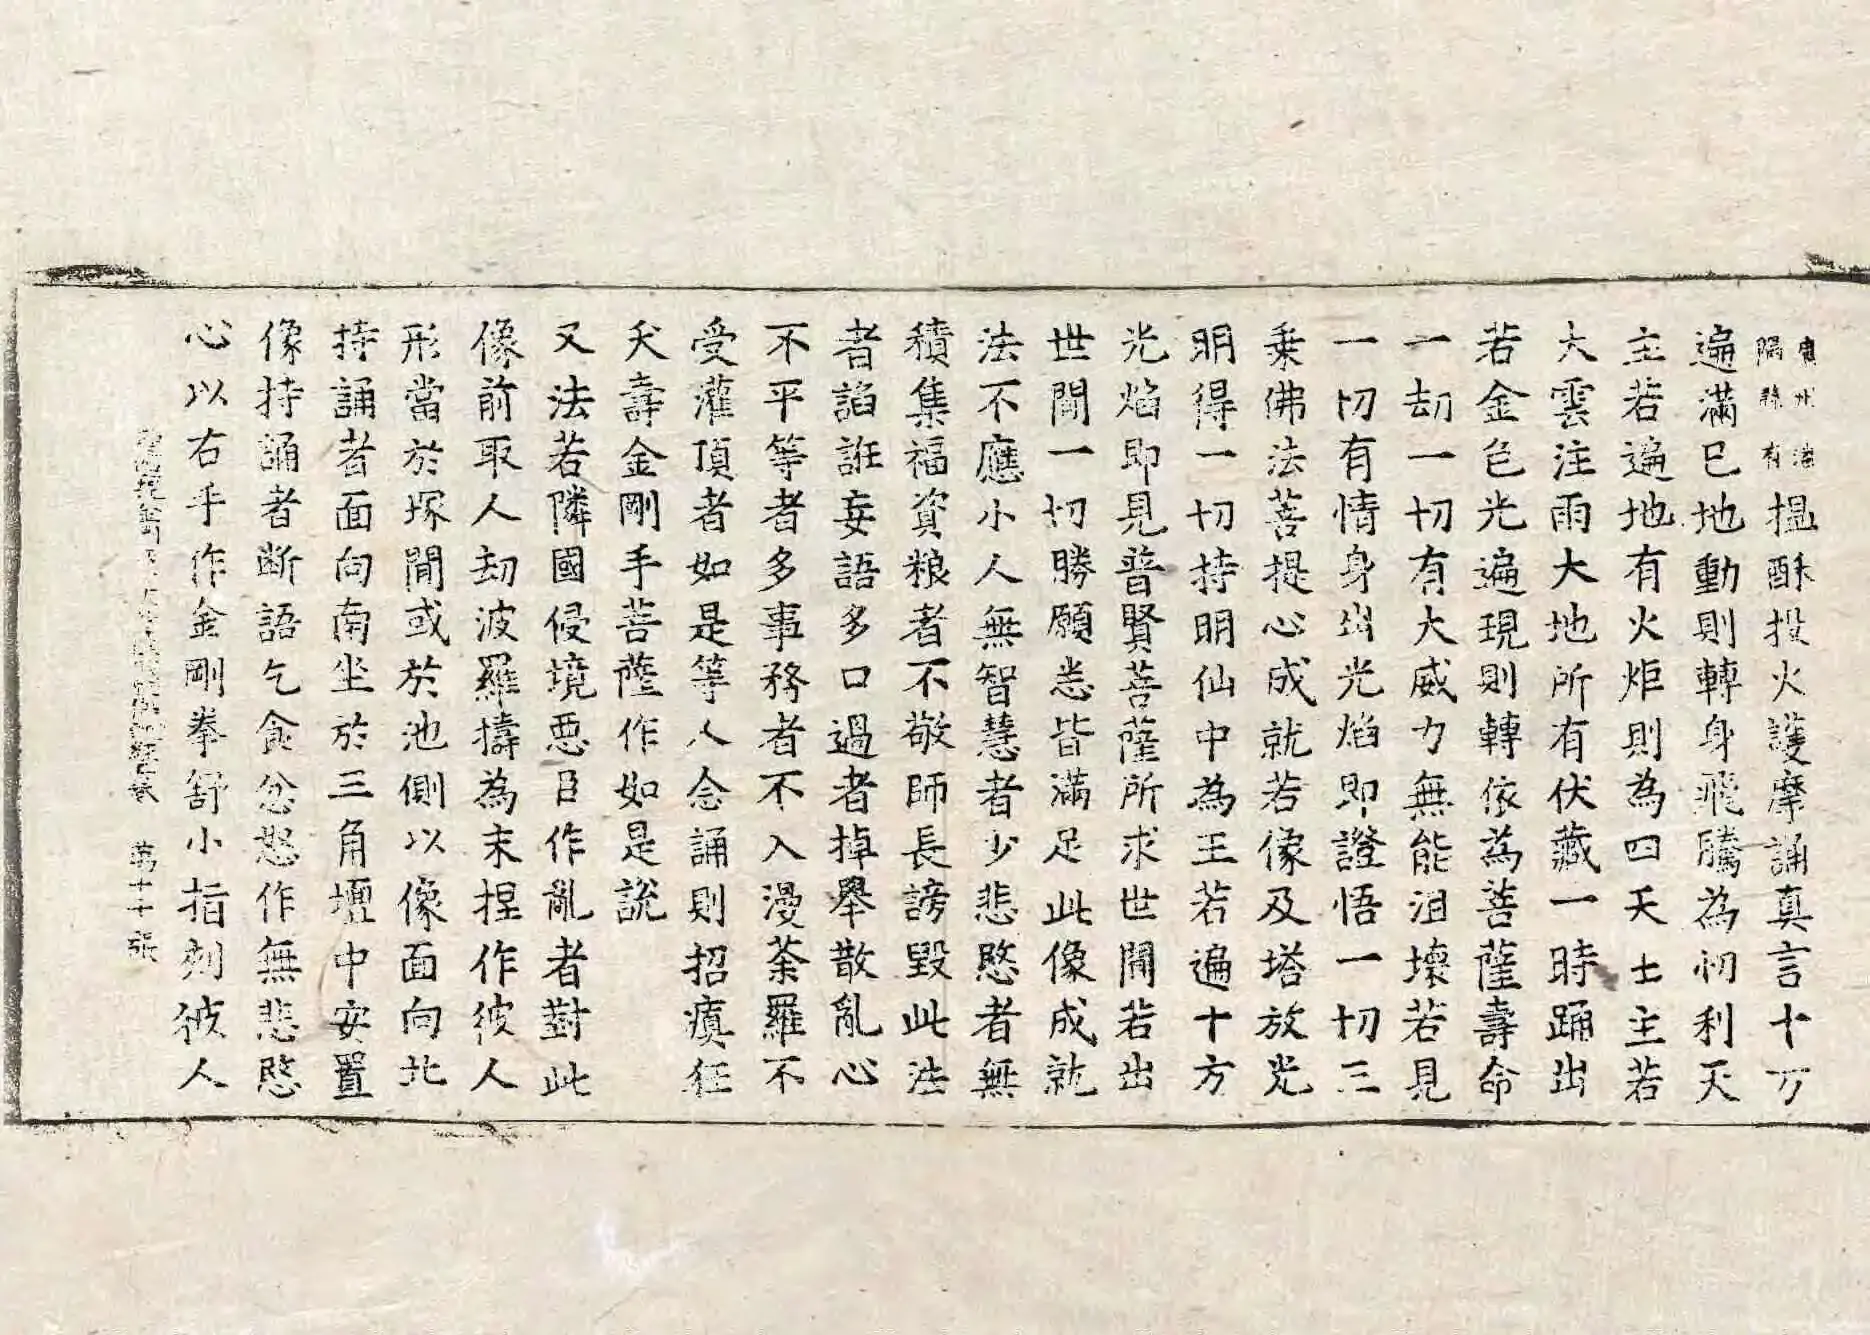 廣州海
隅縣有
揾酥投火護摩誦真言十万
遍滿已地動則轉身飛騰為忉利天
主若遍地有火炬則為四天士主若
大雲注雨大地所有伏藏一時踊出
若金色光遍現則轉依為菩薩壽命
一劫一切有大威力無能沮壞若見
一切有情身出光焰即證悟一切三
乗佛法菩提心成就若像及塔放光
明得一切持明仙中為王若遍十方
光焰即見普賢菩薩所求世間若出
世間一切勝願悉皆滿足此像成就
法不應小人無智慧者少悲愍者無
積集福資粮者不敬師長謗毀此法
者諂誑妄語多口過者掉舉散亂心
不平等者多事務者不入漫荼羅不
受灌頂者如是等人念誦則招癀狂
夭壽金剛手菩薩作如是說
又法若隣國侵境惡臣作亂者對此
像前取人劫波羅擣為末揑作彼人
形當於塚間或於池側以像面向北
持誦者面向南坐於三角壇中安置
像持誦者断語乞食忿怒作無悲愍
心以右手作金剛拳舒小指刻彼人
經 第二十張